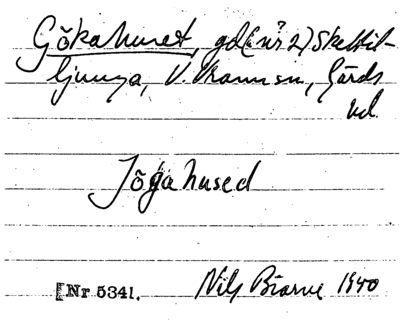 Gökahuset, gd (nr 2) Skettil-
ljunga, V. Karams sn, Gärds
hd.
Jögahused
[Nr 5341. Nils Bjarne 1940